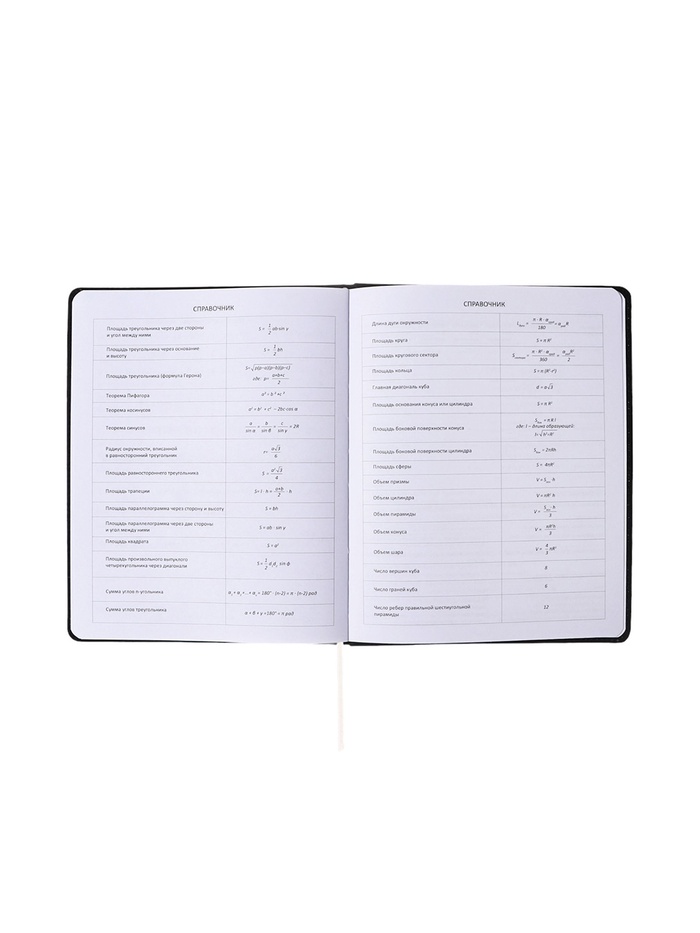 СПРАВОЧНИК
Площадь треугольника через две стороны
и угол между ними
S = 1/2 ab·sin γ
Площадь треугольника через основание
и высоту
S = 1/2 bh
Площадь треугольника (формула Герона)
S=√p(p-a)(p-b)(p-c)
где: p= a+b+c/2
Теорема Пифагора
a² + b² = c²
Теорема косинусов
a² = b² + c² - 2bc·cos α
Теорема синусов
a/sin α = b/sin β = c/sin γ = 2R
Радиус окружности, вписанной
в равносторонний треугольник
r= a√3/6
Площадь равностороннего треугольника
S = a²√3/4
Площадь трапеции
S= l · h = a+b/2 · h
Площадь параллелограмма через сторону и высоту
S = bh
Площадь параллелограмма через две стороны
и угол между ними
S = ab · sin γ
Площадь квадрата
S = a²
Площадь произвольного выпуклого
четырехугольника через диагонали
S = 1/2 d₁d₂ sin ϕ
Сумма углов n-угольника
α₁+ α₂+...+ αₙ = 180° · (n-2) = π · (n-2) рад
Сумма углов треугольника
α + β + γ =180° = π рад
СПРАВОЧНИК
Длина дуги окружности
Площадь круга
S = π R²
Площадь кругового сектора
Площадь кольца
S = π (R²-r²)
Главная диагональ куба
d = a√3
Площадь основания конуса или цилиндра
S = π R²
Площадь боковой поверхности конуса
Sбок = π R l
где: l – длина образующей:
l=√h²+R²
Площадь боковой поверхности цилиндра
Sбок = 2πRh
Площадь сферы
S = 4πR²
Объем призмы
Объем цилиндра
V = πR² h
Объем пирамиды
Объем конуса
V = πR²h/3
Объем шара
V = 4/3 πR³
Число вершин куба
8
Число граней куба
6
Число ребер правильной шестиугольной
пирамиды
12